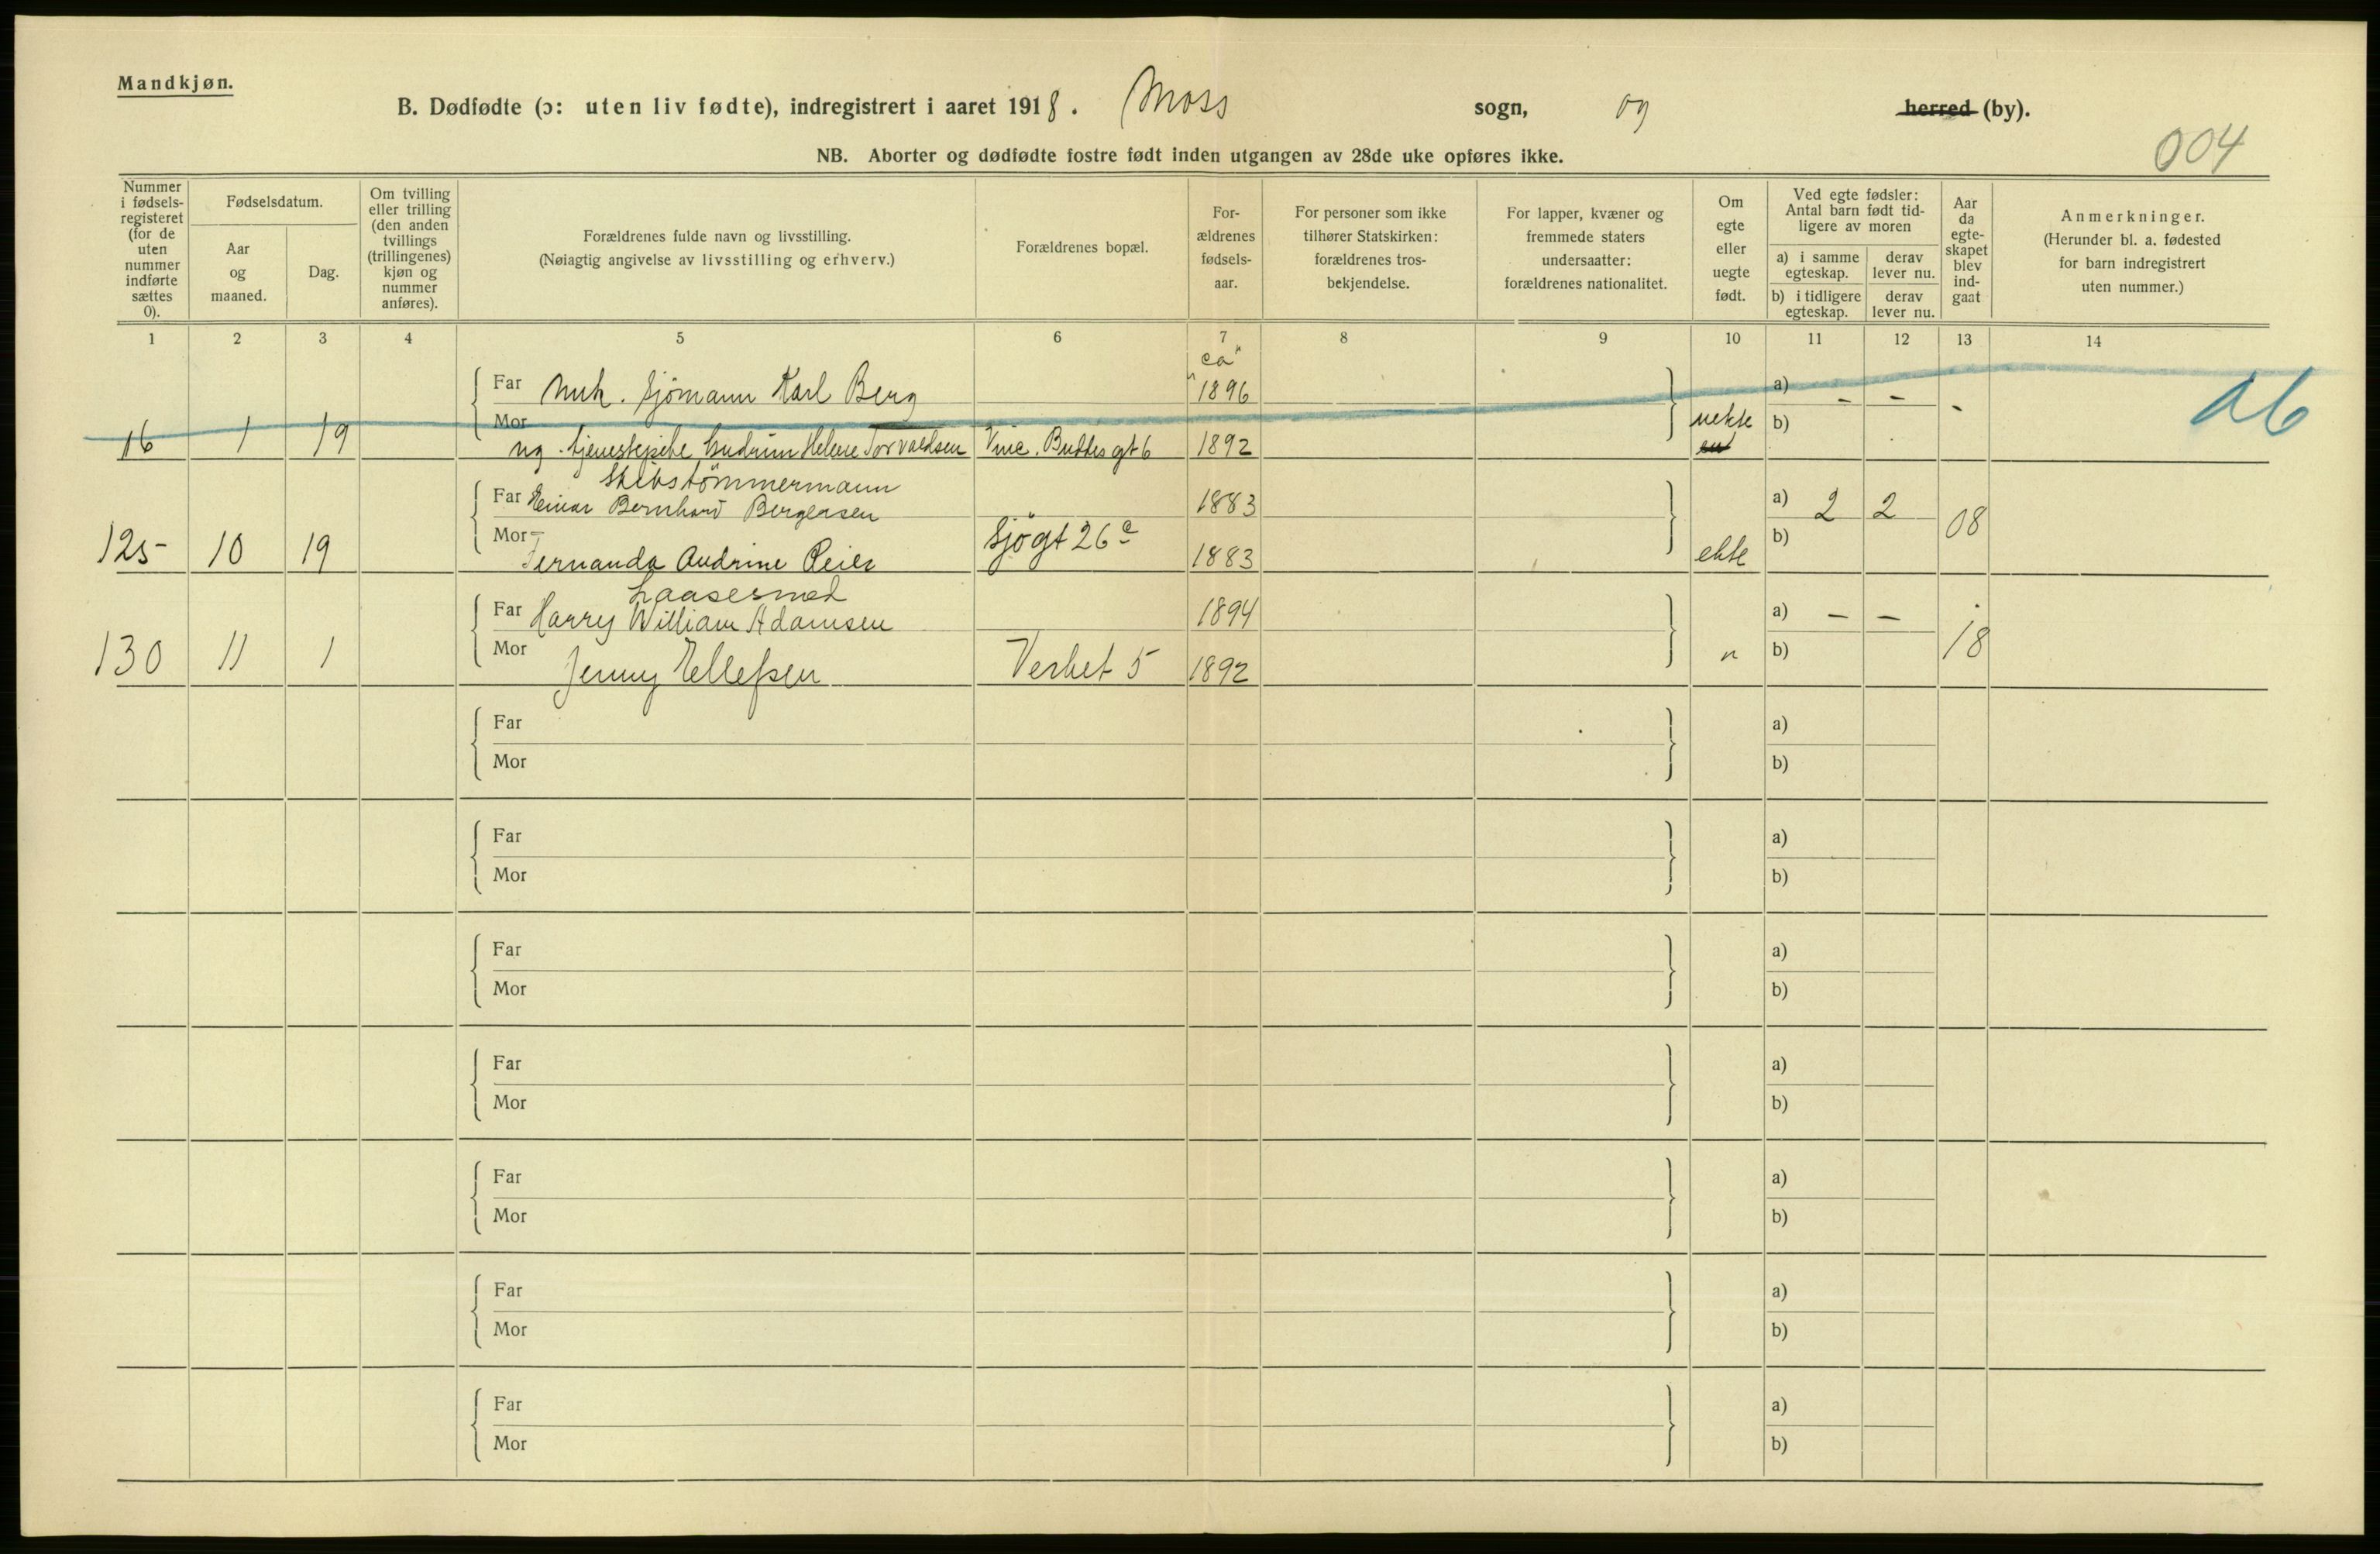 Mandkjøn.
B. Dødfødte (ɔ: uten liv fødte), indregistrert i aaret 1918. Moss sogn, og herred (by).
004
NB. Aborter og dødfødte fostre født inden utgangen av 28de uke opføres ikke.
Nummer i fødsels-registeret (for de uten nummer indførte sættes 0).
Fødselsdatum.
Aar og maaned.
Dag.
Om tvilling eller trilling (den anden tvillings (trillingenes) kjøn og nummer anføres).
Forældrenes fulde navn og livsstilling.
(Nøiagtig angivelse av livsstilling og erhverv.)
Forældrenes bopæl.
For-ældrenes fødsels-aar.
For personer som ikke tilhører Statskirken: forældrenes tros-bekjendelse.
For lapper, kvæner og fremmede staters undersaatter: forældrenes nationalitet.
Om egte eller uegte født.
Ved egte fødsler: Antal barn født tid-ligere av moren
a) i samme egteskap.
derav lever nu.
b) i tidligere egteskap.
derav lever nu.
Aar da egte-skapet blev ind-gaat
Anmerkninger.
(Herunder bl. a. fødested for barn indregistrert uten nummer.)
1 2 3 4 5 6 7 8 9 10 11 12 13 14
ca
Far Sjömann Karl Berg 1896 a) - - -
Mor
16 1 19 tjenestepike Gudrun Helene Torvaldsen Vinc. Buddes gt 6 1892 uekte b)
Ab
Skibstömmermann
Far Einar Bernhard Bergersen 1883 a) 2 2 08
Mor Sjögt 26 b)
125 10 19 Fernanda Andrine Reier 1883 ekte
Laasesmed
Far Harry William Adamsen 1894 a) - - 18
130 11 1 Mor Jenny Ellefsen Verket 5 1892 " b)
Far a)
Mor b)
Far a)
Mor b)
Far a)
Mor b)
Far a)
Mor b)
Far a)
Mor b)
Far a)
Mor b)
Far a)
Mor b)